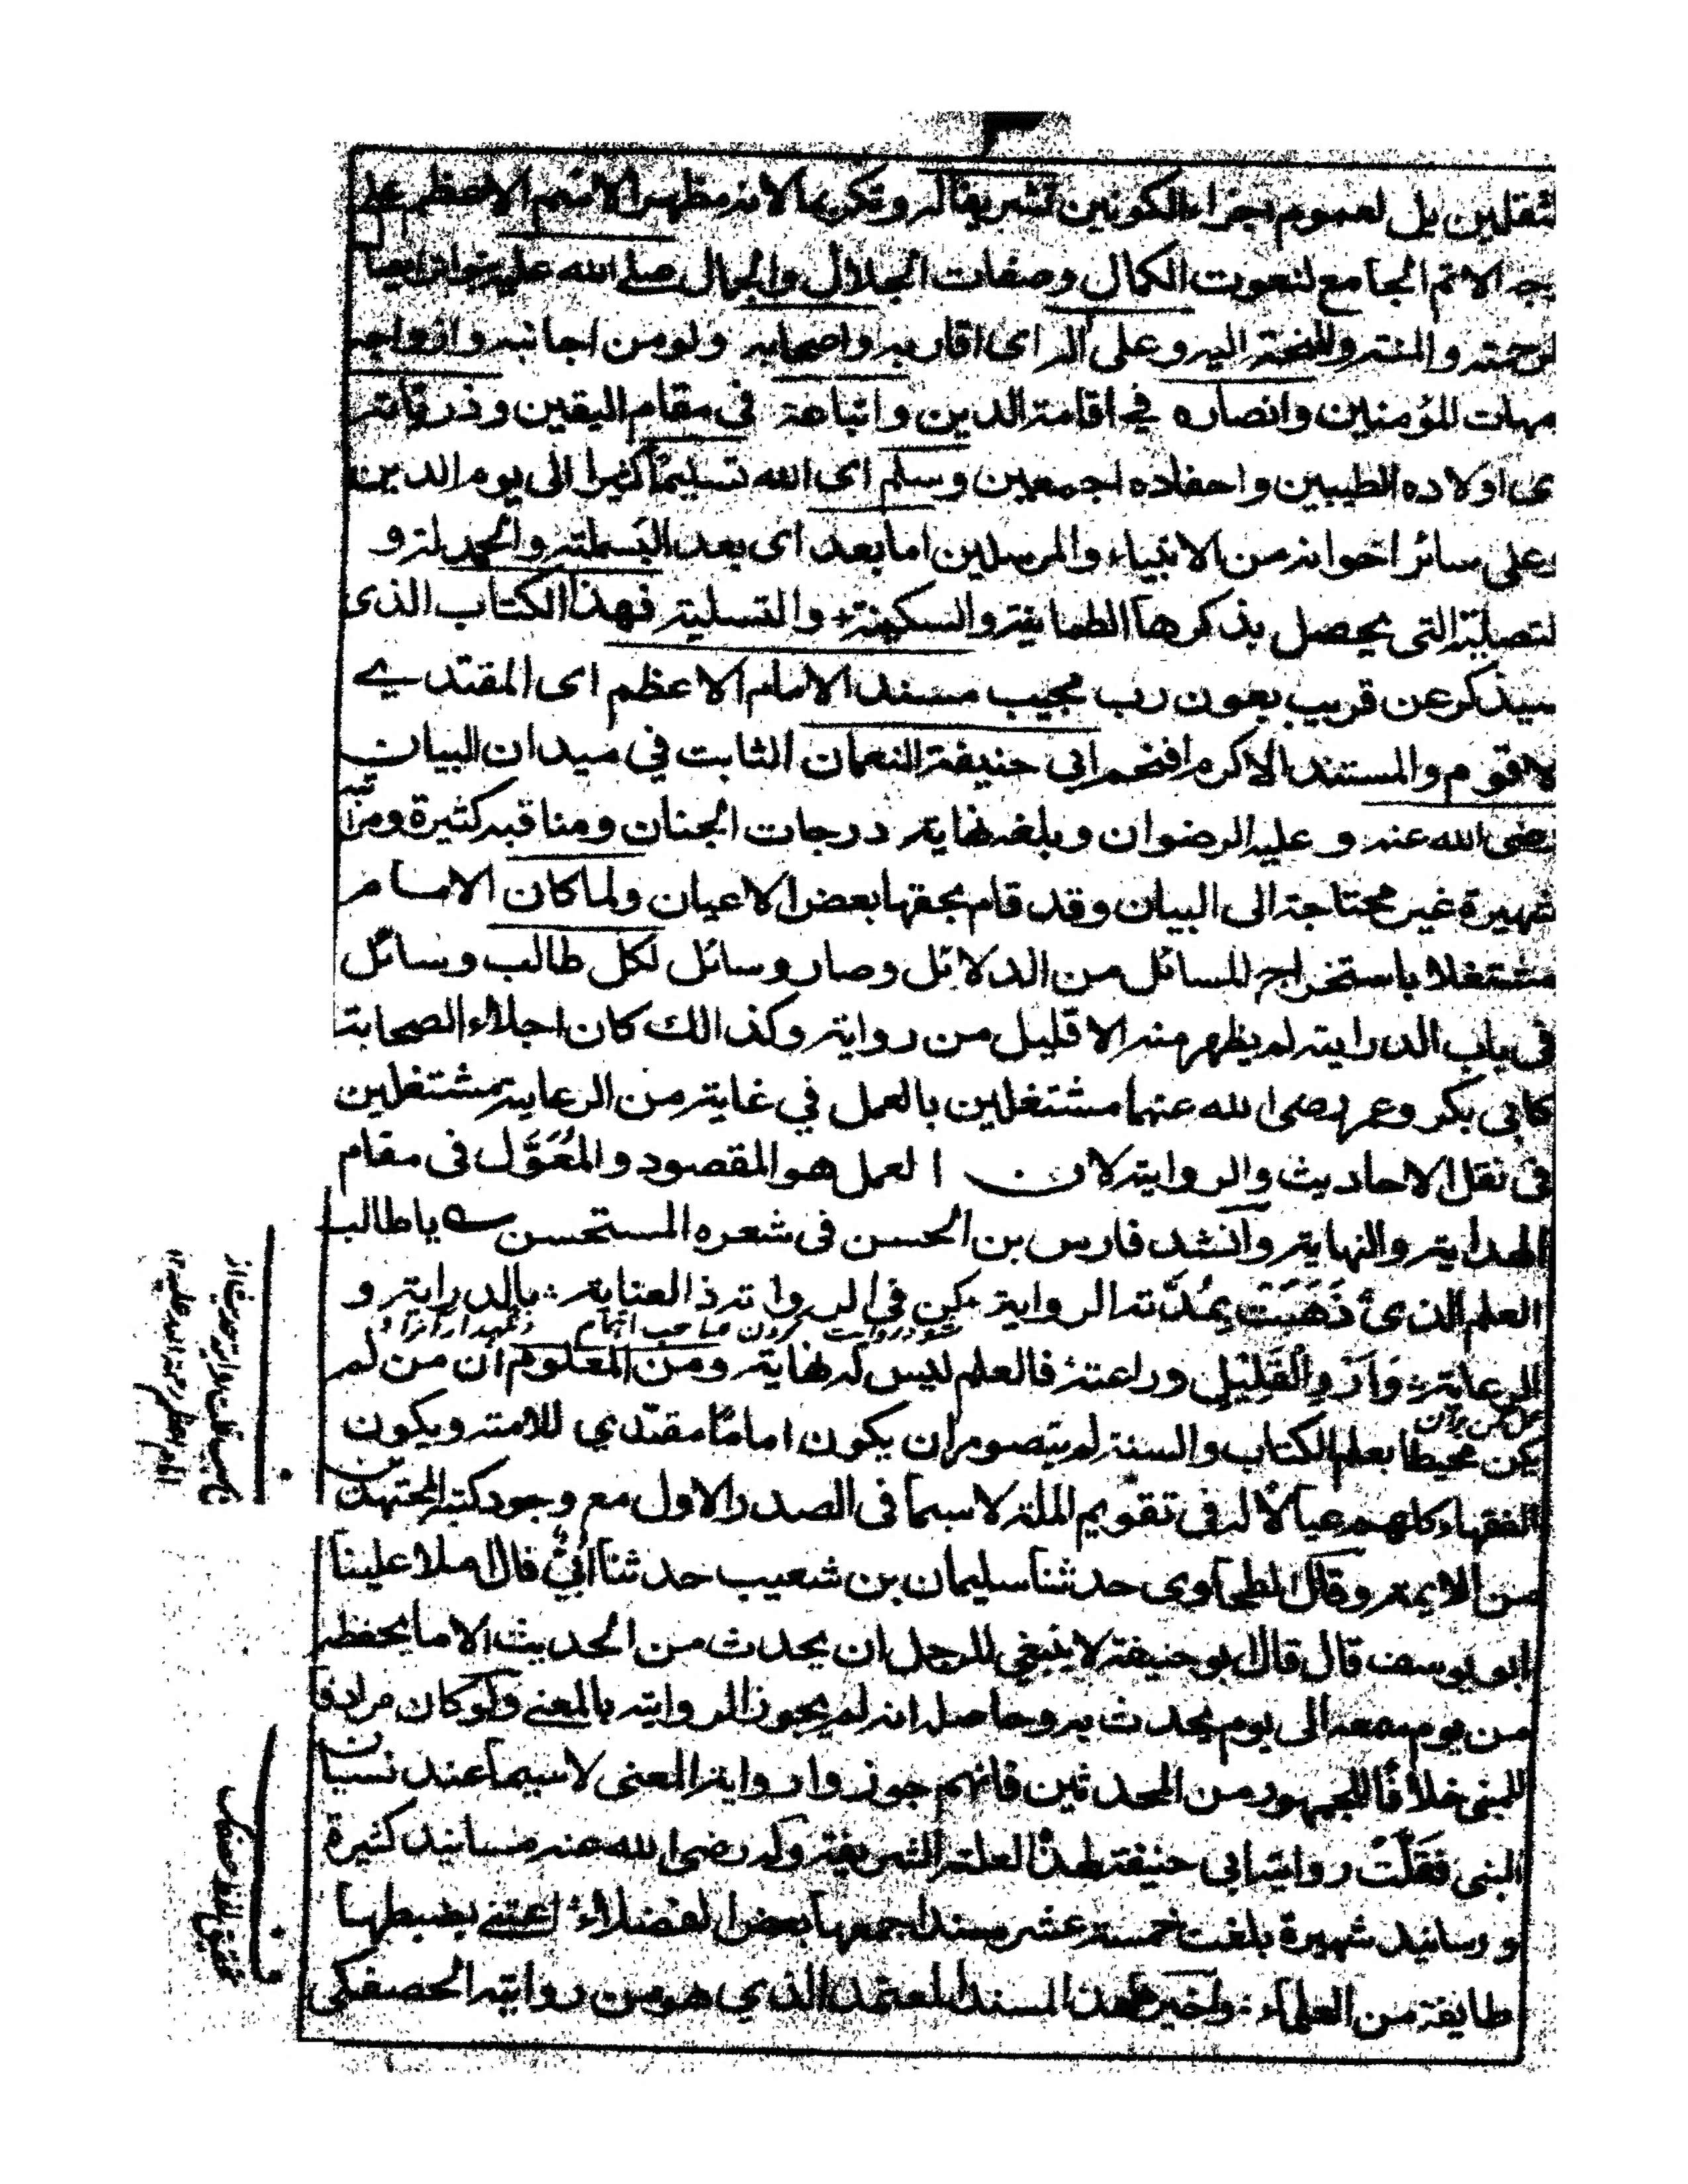 ثقلين بل لعموم اجزاء الكونين تشريفا له وتكريما لانه مظهر الاسم الاعظم على
جه الاتم الجامع لنعوت الكمال وصفات الجلال والجمال صلى الله عليه
لرحمته والمنته والمنحة اليه وعلى اله اى اقاربه واصحابه ولو من اجانبه وازواجه
مهات المؤمنين وانصاره في اقامة الدين واتباعه فى مقام اليقين وذرياته
ى اولاده الطيبين واحفاده اجمعين وسلم اى الله تسليما كثيرا الى يوم الدين
وعلى سائر اخوانه من الانبياء والمرسلين اما بعد اى بعد البسملة والحمد له و
لتصلية التى يحصل بذكرها الطمانية والسكينة والتسلية فهذا الكتاب الذى
سيذكر عن قريب بعون رب مجيب مسند الامام الاعظم اى المقتدي
لاقوم والمستند الاكرم افخم ابي حنيفة النعمان الثابت في ميدان البيان
رضى الله عنه وعليه الرضوان وبلغه نهاية درجات الجنان ومناقبه كثيرة ومراتبه
شهيرة غير محتاجة الى البيان وقد قام بحقها بعض الاعيان ولما كان الامام
مشتغلا باستخراج المسائل من الدلائل وصار وسائل لكل طالب وسائل
فى باب الدراية لم يظهر منه الا قليل من رواية وكذالك كان اجلاء الصحابة
كابى بكر وعمر رضى الله عنهما مشتغلين بالعمل في غاية من الرعاية مشتغلين
فى نقل الاحاديث والرواية لان العمل هو المقصود والمُعَوَّل فى مقام
الهداية والنهاية وانشد فارس بن الحسن فى شعره المستحسن يا طالب
العلم الذى ذَهَبَت بمُدَّته الرواية كن في الرواة ذ العناية بالدراية و
شو در روايت كردن صاحب اهتمام
الرعاية وَارْوِ القَلِيْلِ وراعته فالعلم ليس له نهاية ومن المعلوم ان من لم
يكن محيطا بعلم الكتاب والسنة لم يتصور ان يكون امامًا مقتدي للامة ويكون
الفقهاء كلهم عيالا له فى تقويم الملة لاسيما فى الصدر الاول مع وجود كثرة المجتهدين
من الايمة وقال الطحاوى حدثنا سليمان بن شعيب حدثنا ابيْ قال املا علينا
ابو يوسف قال قال ابو حنيفة لا ينبغي للرجل ان يحدث من الحديث الا ما يحفظه
من يوم سمعه الى يوم يحدث به وحاصله انه لم يجوز الرواية بالمعنے ولو كان مرادفا
للمبنى خلافًا للجمهور من المحدثين فانهم جوزوا رواية المعنى لاسيما عند نسيان
المبنى فَقَلَّتْ رواية ابى حنيفة لهذا العلة الشريفة وله رضى الله عنه مسانيد كثيرة
و رسانيد شهيرة بلغت خمسة عشر مسندا جمعها بعض الفضلاء اعتنے بضبطها
طايفة من العلماء واخير هذا المسند المعتمد الذي هو من رواية الحصفكى